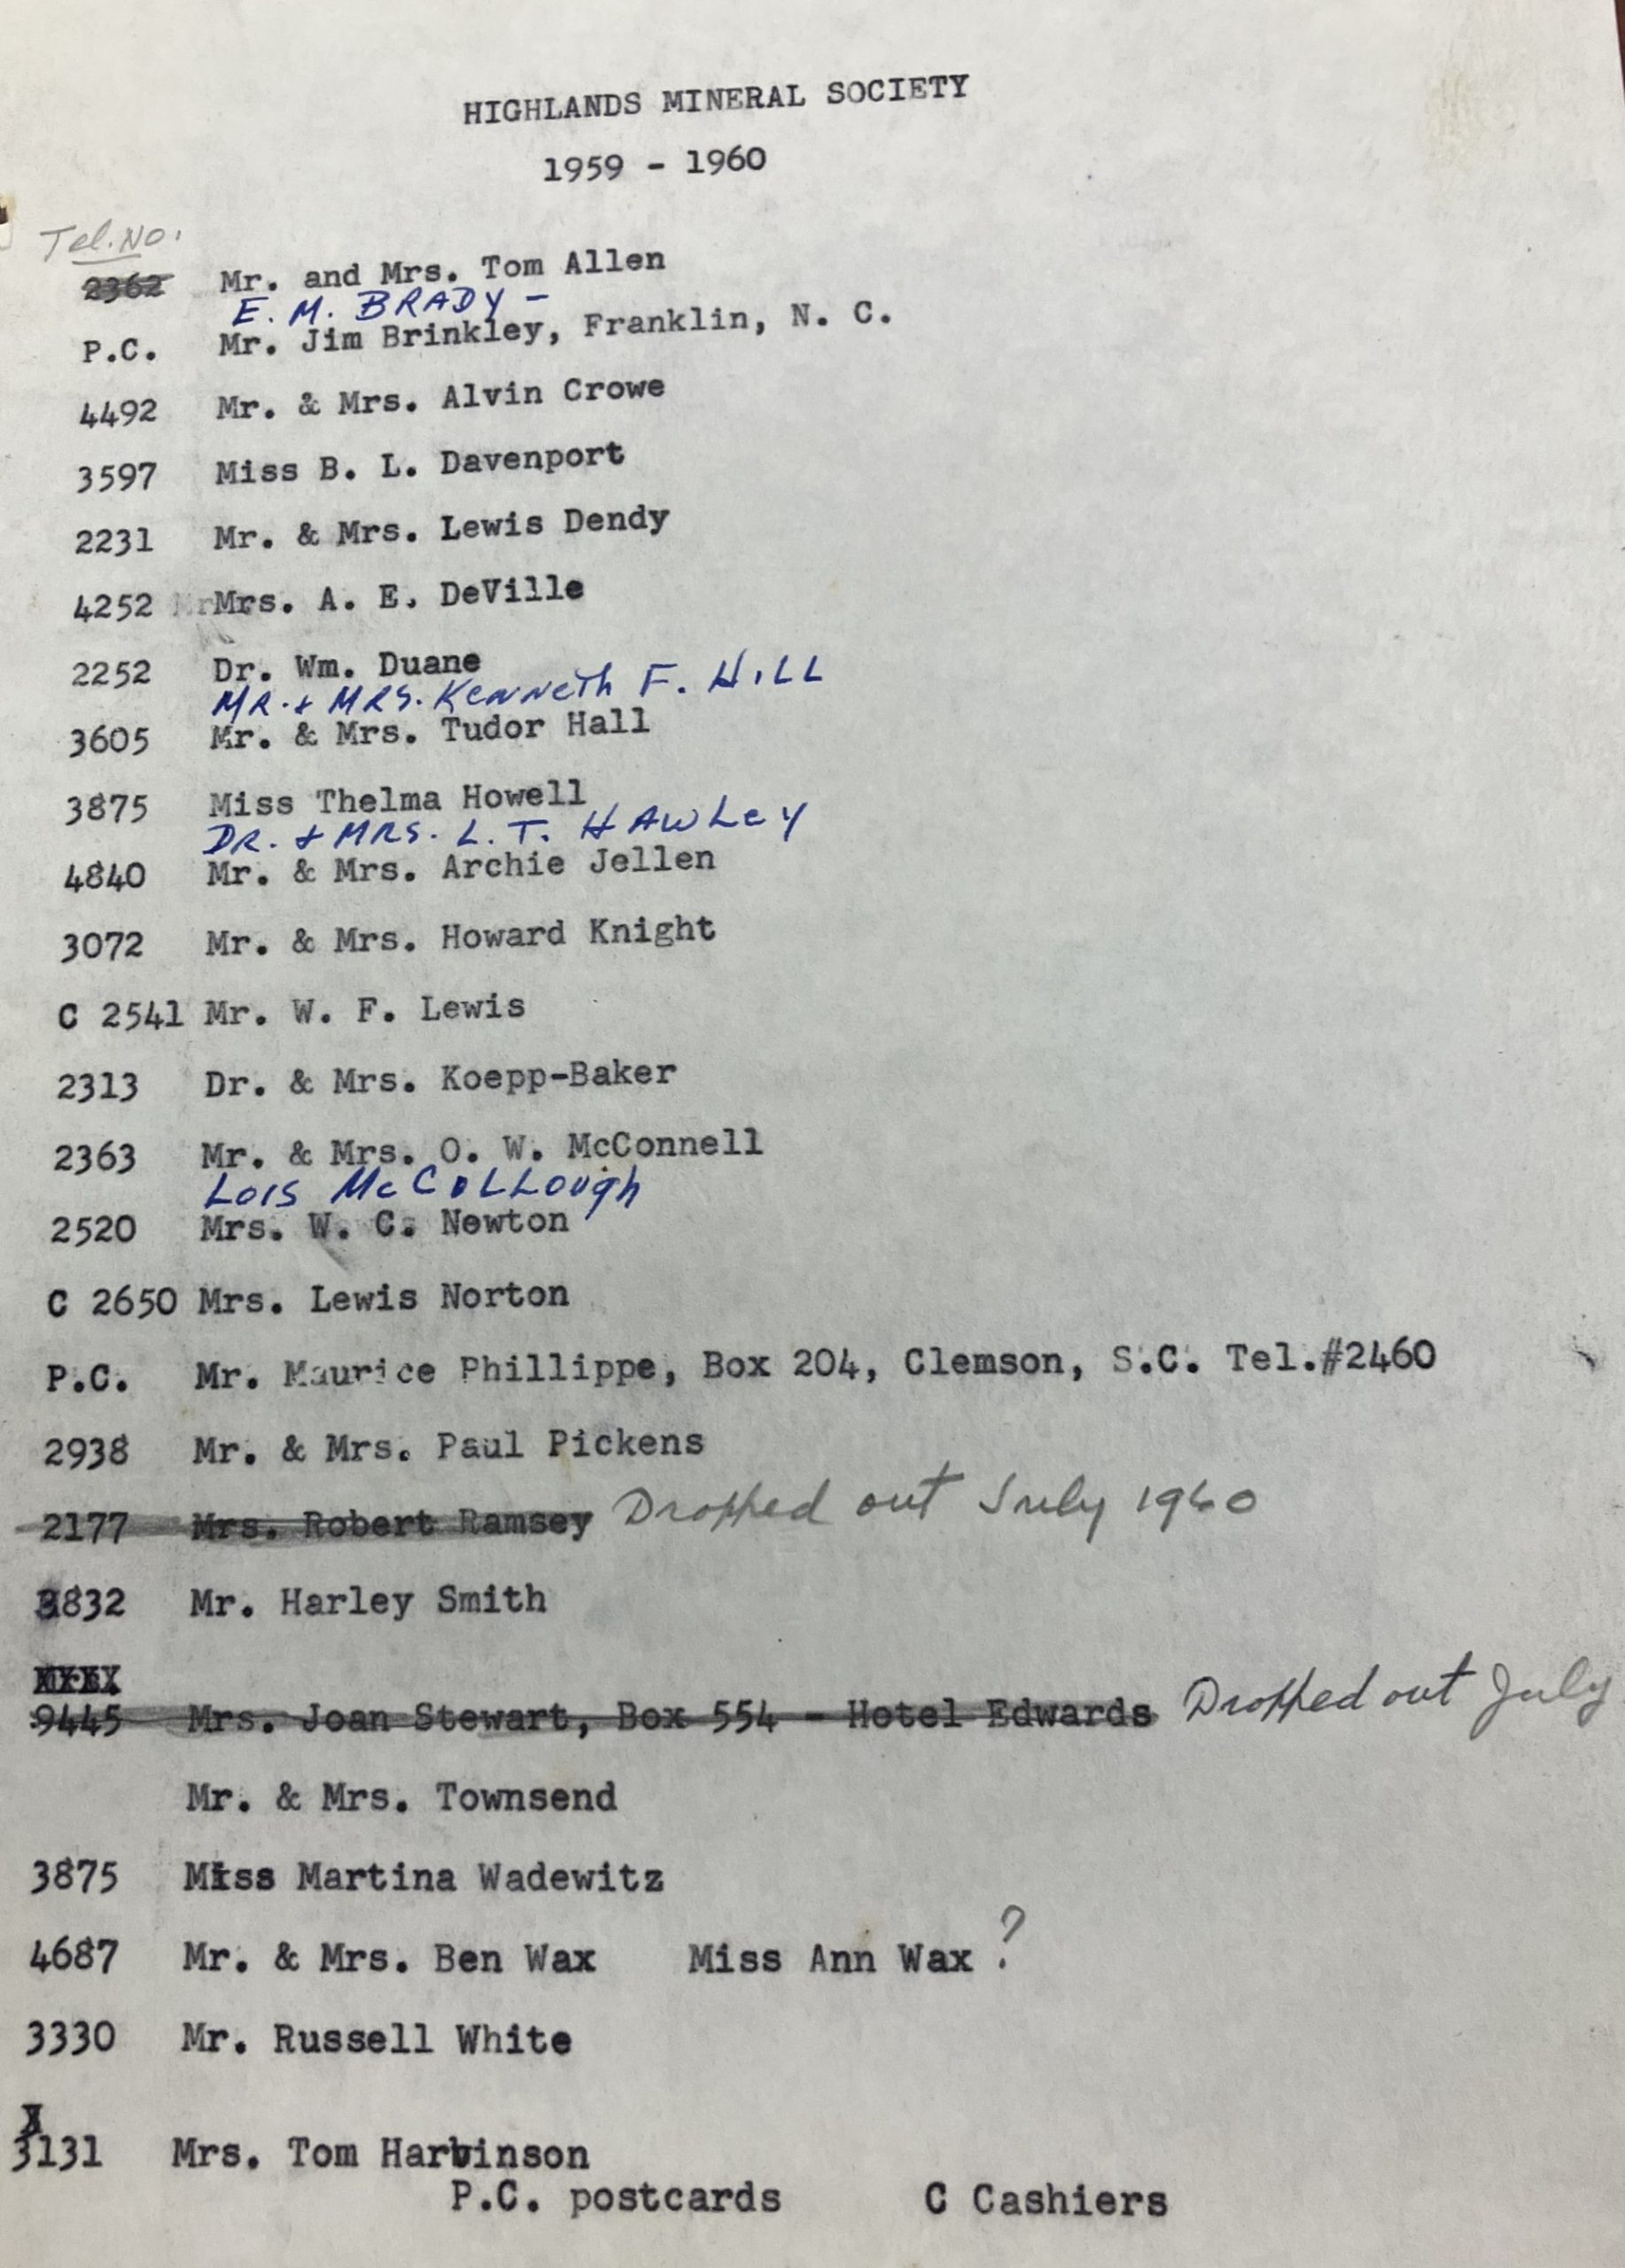 HIGHLANDS MINERAL SOCIETY
1959 - 1960
Tel. No.
2362 Mr. and Mrs. Tom Allen
E. M. BRADY -
P.C. Mr. Jim Brinkley, Franklin, N. C.
4492 Mr. & Mrs. Alvin Crowe
3597 Miss B. L. Davenport
2231 Mr. & Mrs. Lewis Dendy
4252 Mrs. A. E. DeVille
2252 Dr. Wm. Duane
MR. & MRS. Kenneth F. HILL
3605 Mr. & Mrs. Tudor Hall
3875 Miss Thelma Howell
DR. & MRS. L. T. HAWLey
4840 Mr. & Mrs. Archie Jellen
3072 Mr. & Mrs. Howard Knight
C 2541 Mr. W. F. Lewis
2313 Dr. & Mrs. Koepp-Baker
2363 Mr. & Mrs. O. W. McConnell
Lois McCOLLough
2520 Mrs. W. C. Newton
C 2650 Mrs. Lewis Norton
P.C. Mr. Maurice Phillippe, Box 204, Clemson, S.C. Tel.#2460
2938 Mr. & Mrs. Paul Pickens
2177 Mrs. Robert Ramsey Dropped out July 1960
3832 Mr. Harley Smith
9445 Mrs. Joan Stewart, Box 554 - Hotel Edwards Dropped out July
Mr. & Mrs. Townsend
3875 Miss Martina Wadewitz
4687 Mr. & Mrs. Ben Wax Miss Ann Wax ?
3330 Mr. Russell White
X
3131 Mrs. Tom Harbinson
P.C. postcards C Cashiers